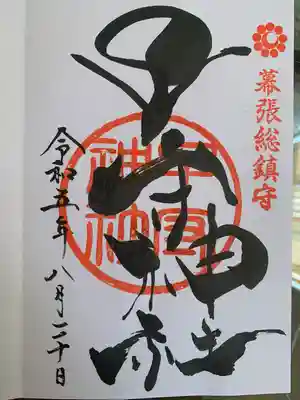 幕張総鎮守
子守神社
令和五年八月二十日